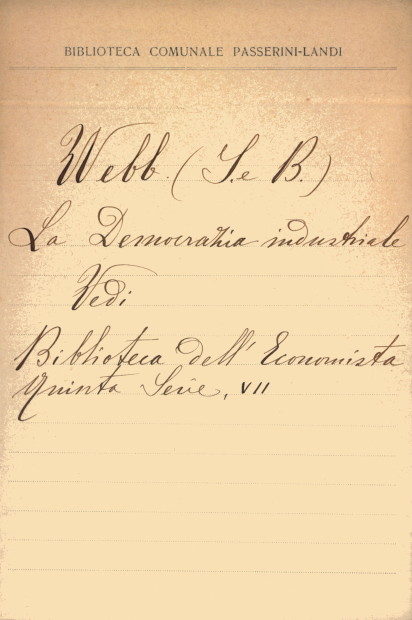 BIBLIOTECA COMUNALE PASSERINI-LANDI
Webb (S. e B.)
La Democrazia industriale
Vedi
Biblioteca dell' Economista
Quinta Serie, VII